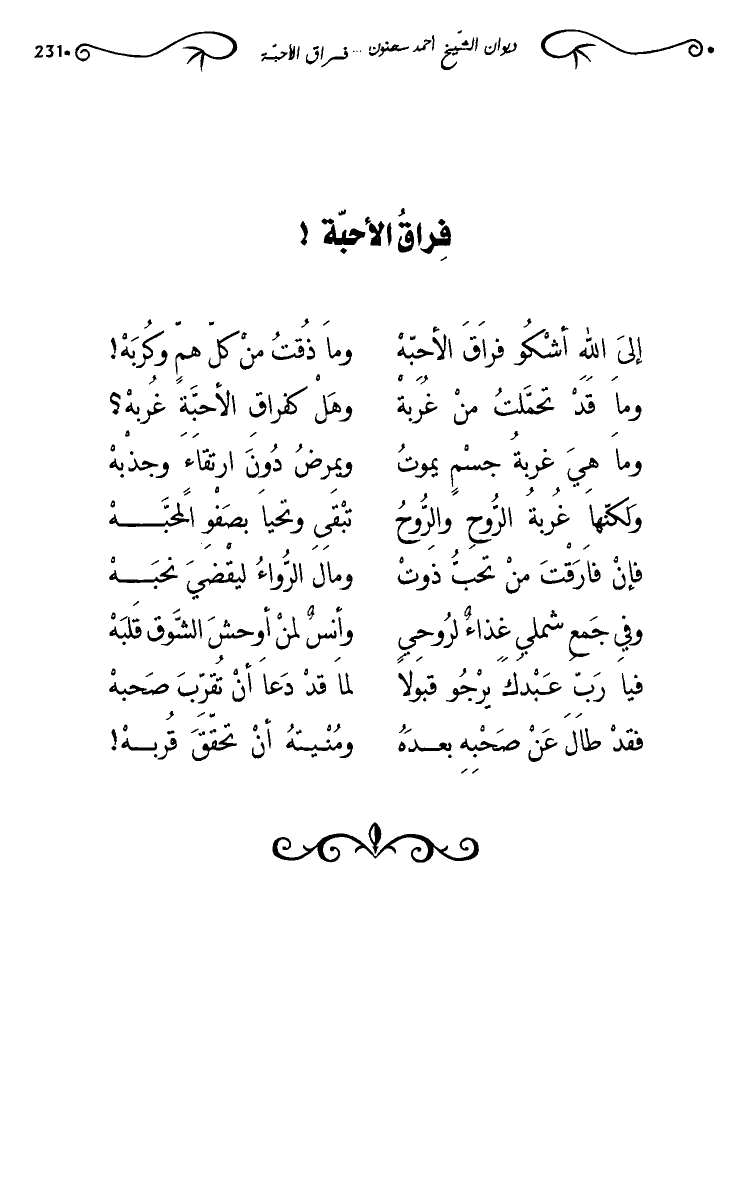 ديوان الشّيخ أحمد سحنون ... فراق الأحبّة 231
فِراقُ الأحبّة !
إلىَ اللهِ أشْكُو فراقَ الأحبّهْ وماَ ذُقتُ منْ كلّ همّ وكُربَهْ!
وماَ قَدْ تحمَّلتُ منْ غُربةْ وهَلْ كفراقِ الأحبَّةِ غُربهْ؟
وماَ هيَ غربةُ جسْمٍ يموتُ ويمرضُ دُونَ ارتقاءً وجذْبهْ
ولَكنّهاَ غُربةُ الرُّوحِ والرُّوحُ تبْقَى وتحياَ بصَفْوِ المحَبَّـــهْ
فإنْ فارَقْتَ منْ تحبُّ ذوتْ ومالَ الرُّواءُ ليقْضيَ نحبَـــهْ
وفي جَمعِ شملي غِذاءٌ لرُوحِي وأنسٌ لمنْ أوحشَ الشَّوق قلبَهْ
فياَ رَبّ عَـبْدكَ يرْجُو قبولاً لماَ قدْ دَعاَ أنْ تُقرّبَ صَحبهْ
فقدْ طالَ عَنْ صَحْبِهِ بعـدَهُ ومُنْـيـتهُ أنْ تحقّقَ قُربـــهْ!